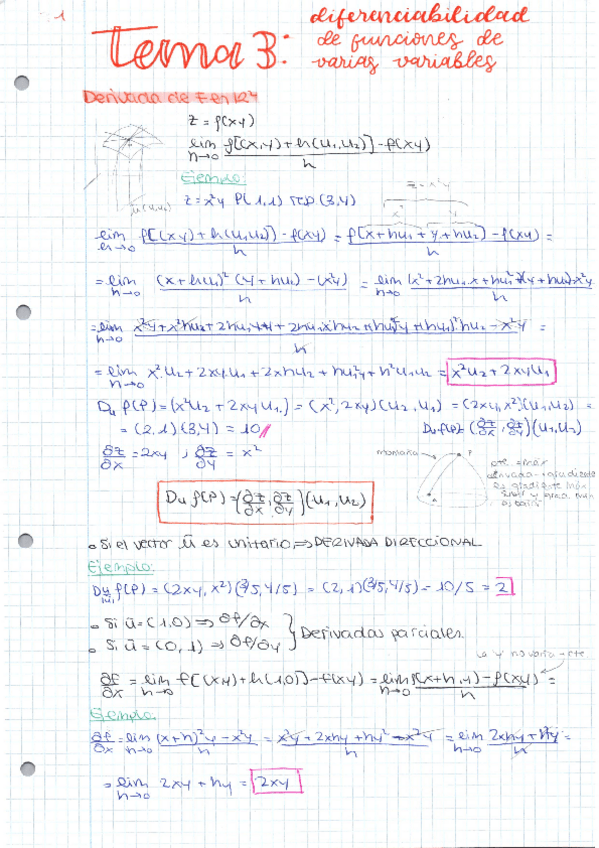 1
Tema 3: diferenciabilidad
de funciones de
varias variables
Derivada de
z = f(x,y)
lim f[(x,y)+h(u₁,u₂)]-f(x,y)
h→0 h
Ejemplo:
z = x²y P(1,1) (3,4)
z = x²y
x² y
ū(u₁,u₂)
lim f[(x,y)+h(u₁,u₂)]-f(x,y) = f[x+hu₁ + y+hu₂]-f(x,y) =
h→0 h h
= lim (x+hu₁)² (y+hu₂) -(x²y) = lim (x²+2hu₁x+hu₁²)(y+hu₂)-x²y
h→0 h h→0 h
= lim x²y+x²hu₂+2hu₁
h→0 h
= lim x²u₂+2xyu₁+2xhu₂+hu₁²y+h²u₁u₂ = x²u₂+2xyu₁
h→0
Du f(P)=(x²u₂+2xyu₁)=(x²,2xy)(u₂,u₁) =(2xy,x²)(u₁,u₂) =
= (2,1)(3,4) = 10 Duf(P)=(∂z/∂x,∂z/∂y)(u₁,u₂)
∂z/∂x = 2xy , ∂z/∂y = x²
montaña P
A
Du f(P)=(∂z/∂x,∂z/∂y)(u₁,u₂)
• Si el vector ū es unitario,⇒DERIVADA DIRECCIONAL
Ejemplo:
Du f(P) = (2xy,x²)(3/5,4/5) = (2,1)(3/5,4/5) = 10/5 = 2
|u|
• Si ū=(1,0) ⇒ ∂f/∂x
• Si ū=(0,1) ⇒ ∂f/∂y
} Derivadas parciales.
la y no varía → cte
∂f/∂x = lim f[(x,y)+h(1,0)]-f(x,y) = lim f(x+h,y)-f(x,y) =
h→0 h→0 h
Ejemplo:
∂f/∂x = lim (x+h)²y-x²y = x²y+2xhy+hy²-x²y = lim 2xhy+h²y =
h→0 h h h→0 h
= lim 2xy+hy = 2xy
h→0